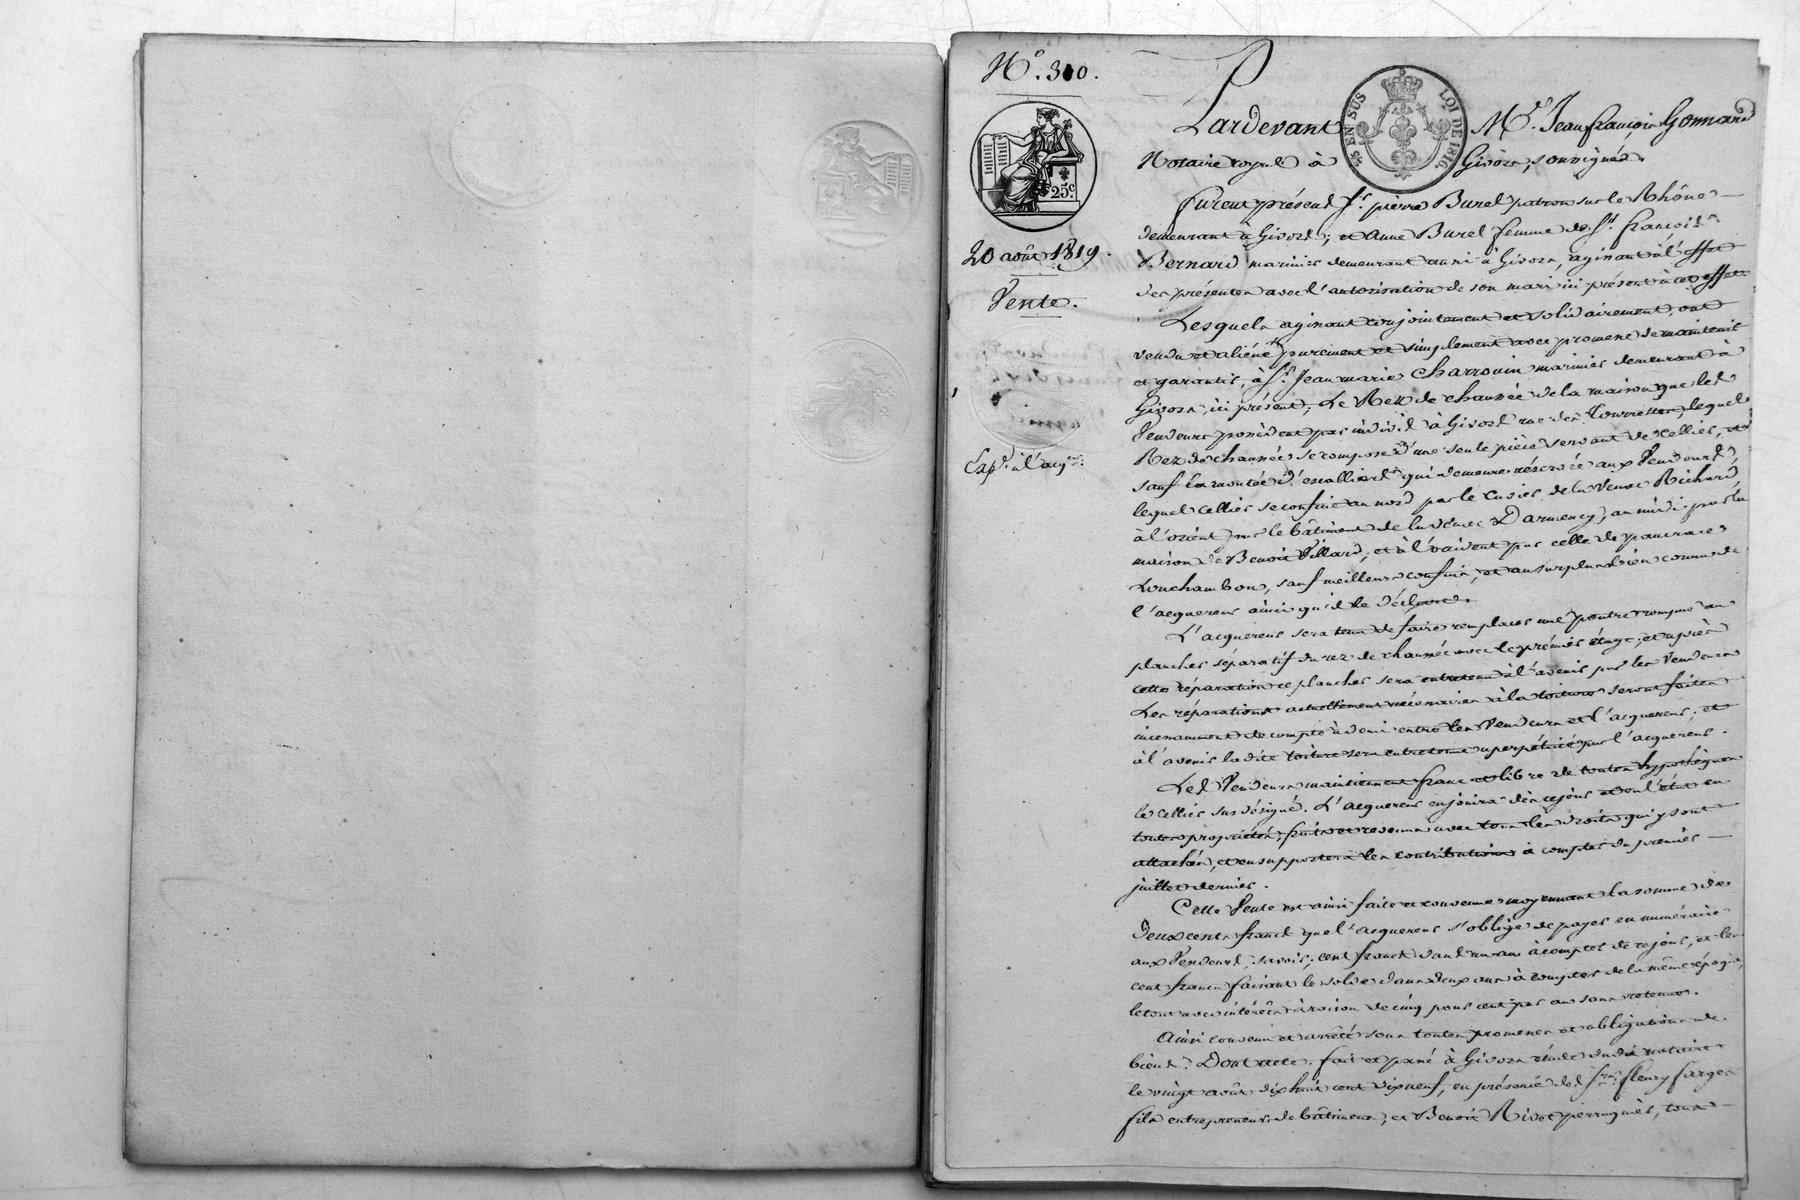 N.° 310.
25.c
25 EN SUS
LOI DE 1816
20 août 1819.
Vente.
Exp.d à l'acq.r
Pardevant M.e Jean françois Gonnard
Notaire royal à Givors, soussigné.
furent présent S.r pierre Burel patron sur le Rhône
demeurant à Givors; et Anne Burel femme de S.r françois
Bernard marinier demeurant aussi à Givors, agissant à l'effet
des présentes avec l'autorisation de son mari ici présent à cet effet.
Lesquels agissant conjointement et solidairement, ont
vendu et aliéné purement et simplement avec promesse de maintenir
et garantir, à S.r Jean marie Charrouin marinier demeurant à
Givors, ici présent; Le Rez de chaussée de la maison que les
Vendeurs possèdent par indivis à Givors rue des Tourrettes, lequel
Rez de chaussée se compose d'une seule pièce servant de cellier, et
sauf la montée d'escalliers qui demeure réservée aux Vendeurs,
lequel cellier se confine au nord par le cuvier de la Veuve Richard,
à l'orient par le bâtiment de la veuve Darmency, au midi par la
maison de Benoit Villard, et à l'occident par celle de pancrace
Louchambon, sauf meilleurs confins, et au surplus bien connu de
l'acquereur ainsi qu'il le déclare.
L'acquereur sera tenu de faire remplacer une poutre rompue au
plancher séparatif du rez de chaussée avec le premier étage; et après
cette réparation ce plancher sera entretenu à l'avenir par les Vendeurs
Les réparations actuellement nécessaires à la toiture seront faites
incessamment de compte à demi entre les Vendeurs et l'acquereur; et
à l'avenir la dite toiture sera entretenue à perpétuité par l'acquereur.
Les Vendeurs maintiennent franc et libre de toutes hypothèques
le cellier sus désigné. L'acquereur en jouira dès ce jour et en l'état en
toutes propriétés, fruits et revenus avec tous les droits qui y sont
attachés, et en supportera les contributions à compter du premier
juillet dernier.
Cette Vente est ainsi faite et convenue moyennant la somme de
deux cents francs que l'acquereur s'oblige de payer en numéraire
aux Vendeurs, savoir; cent francs dans un an à compter de ce jour, et les
cent francs faisant le solde dans deux ans à compter de la même époque,
le tout avec intérêts à raison de cinq pour cent par an sans retenue.
Ainsi convenu et arrêté sous toutes promesses et obligations de
biens. Dont acte. fait et passé à Givors étude du dit notaire
le vingt août dix huit cent dix neuf, en présence des S.rs fleury farges
fils entrepreneur de bâtimens, et Benoit Rivot perruquier, tous